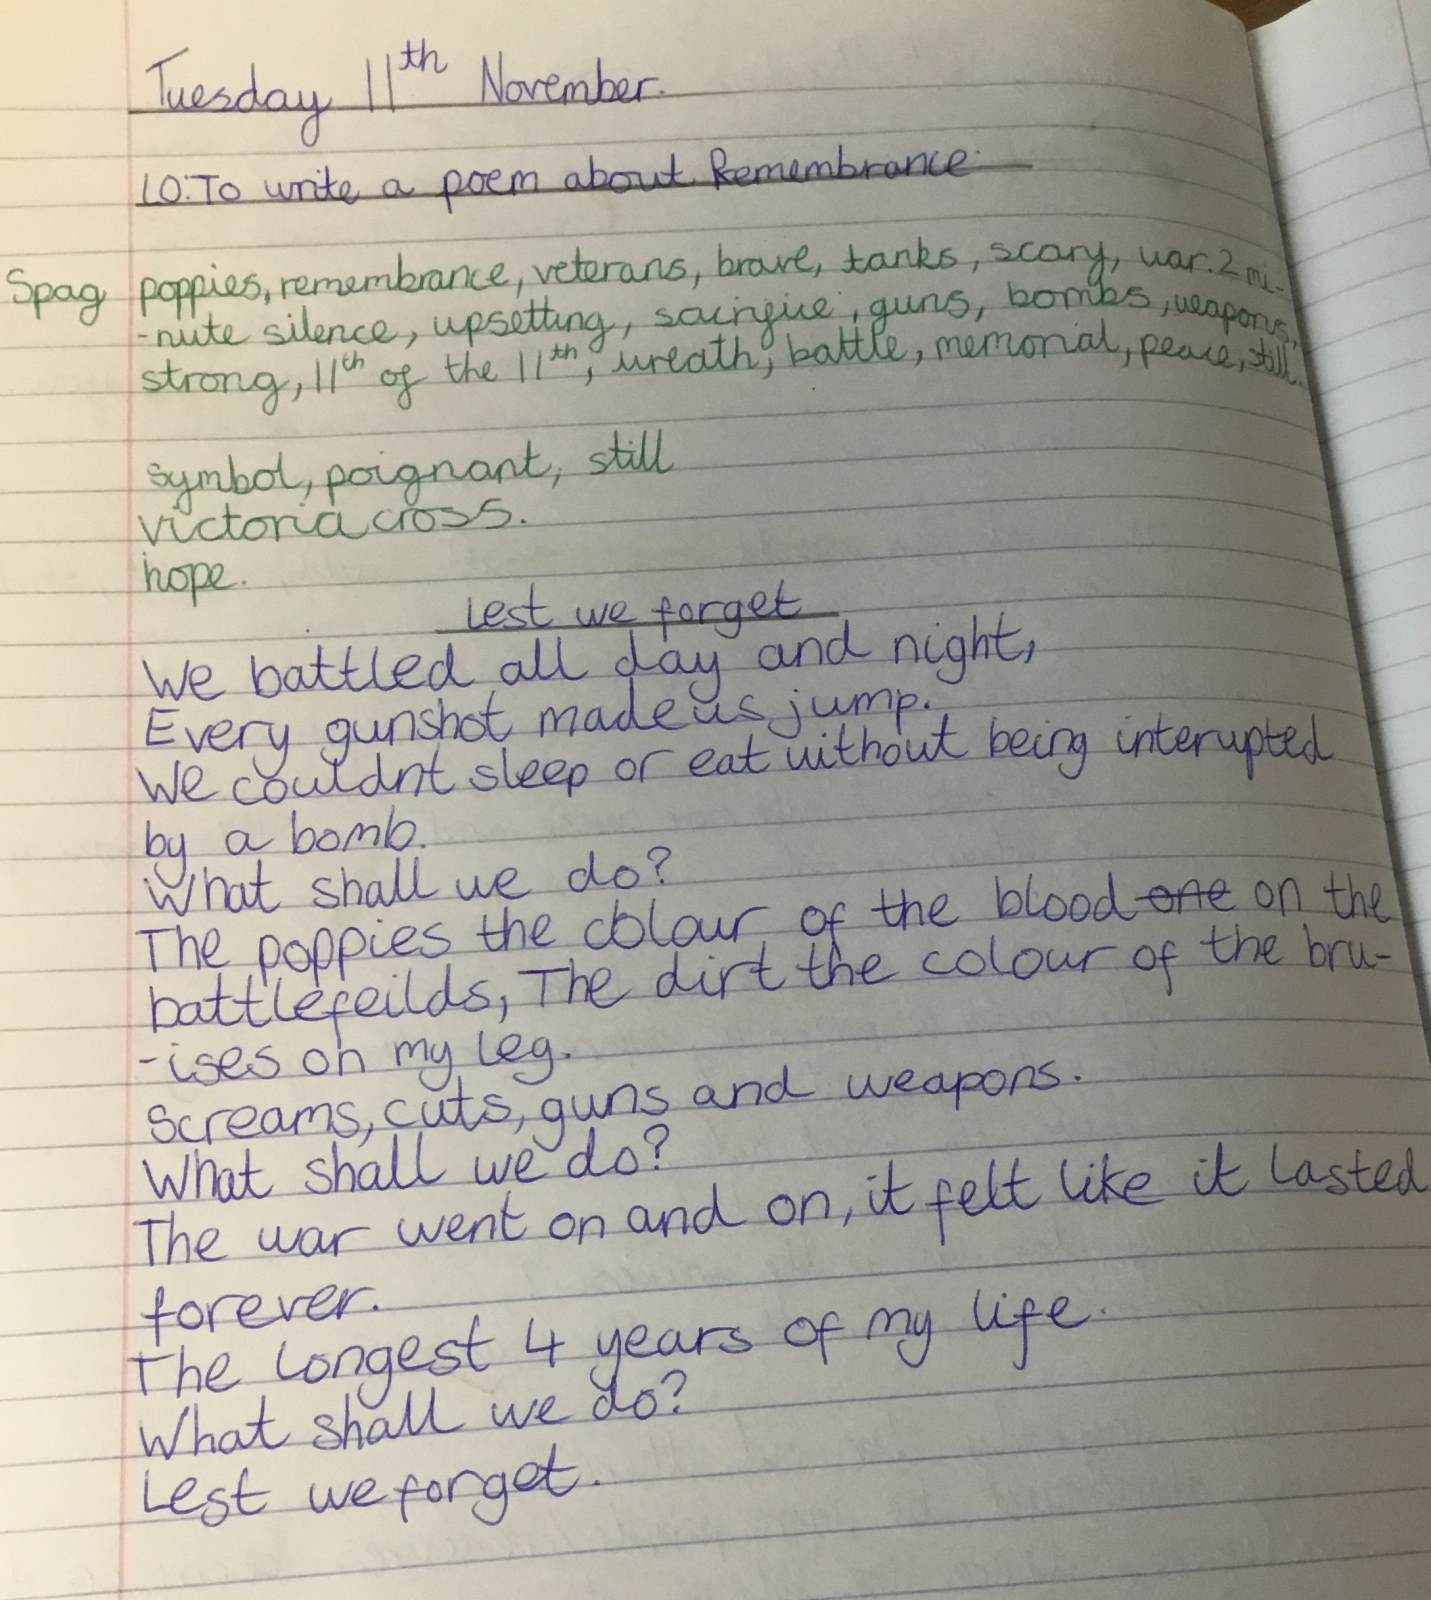 Tuesday 11th November.
LO: To write a poem about Remembrance.
Spag poppies, remembrance, veterans, brave, tanks, scary, war. 2 mi-
-nute silence, upsetting, sacrifice, guns, bombs, weapons,
strong, 11th of the 11th, wreath, battle, memorial, peace, still.
symbol, poignant, still
victoria cross.
hope.
Lest we forget
We battled all day and night,
Every gunshot made us jump.
We couldnt sleep or eat without being interupted
by a bomb.
What shall we do?
The poppies the colour of the blood one on the
battlefeilds, The dirt the colour of the bru-
-ises on my leg.
Screams, cuts, guns and weapons.
What shall we do?
The war went on and on, it felt like it lasted
forever.
The longest 4 years of my life.
What shall we do?
Lest we forget.